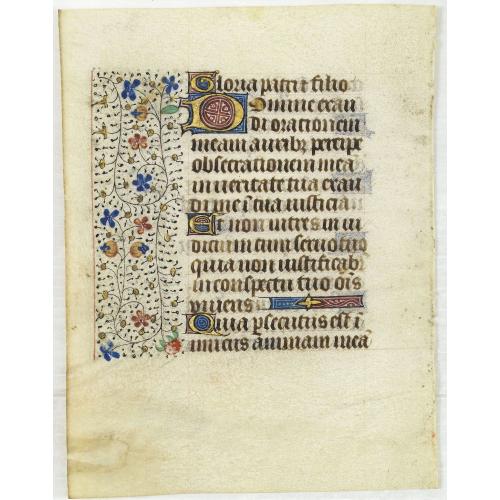 Gloria patri et filio
Domine exau
di orationem
meam auribȝ percipe
obsecrationem meā
in veritate tua exau
di me ī tua iusticia
Et non intres in iu
dicium cum servo tuo
quia non iustificabit̃
in conspectu tuo oīs
vivens
Quia psecutus est ī
imicus animam meā